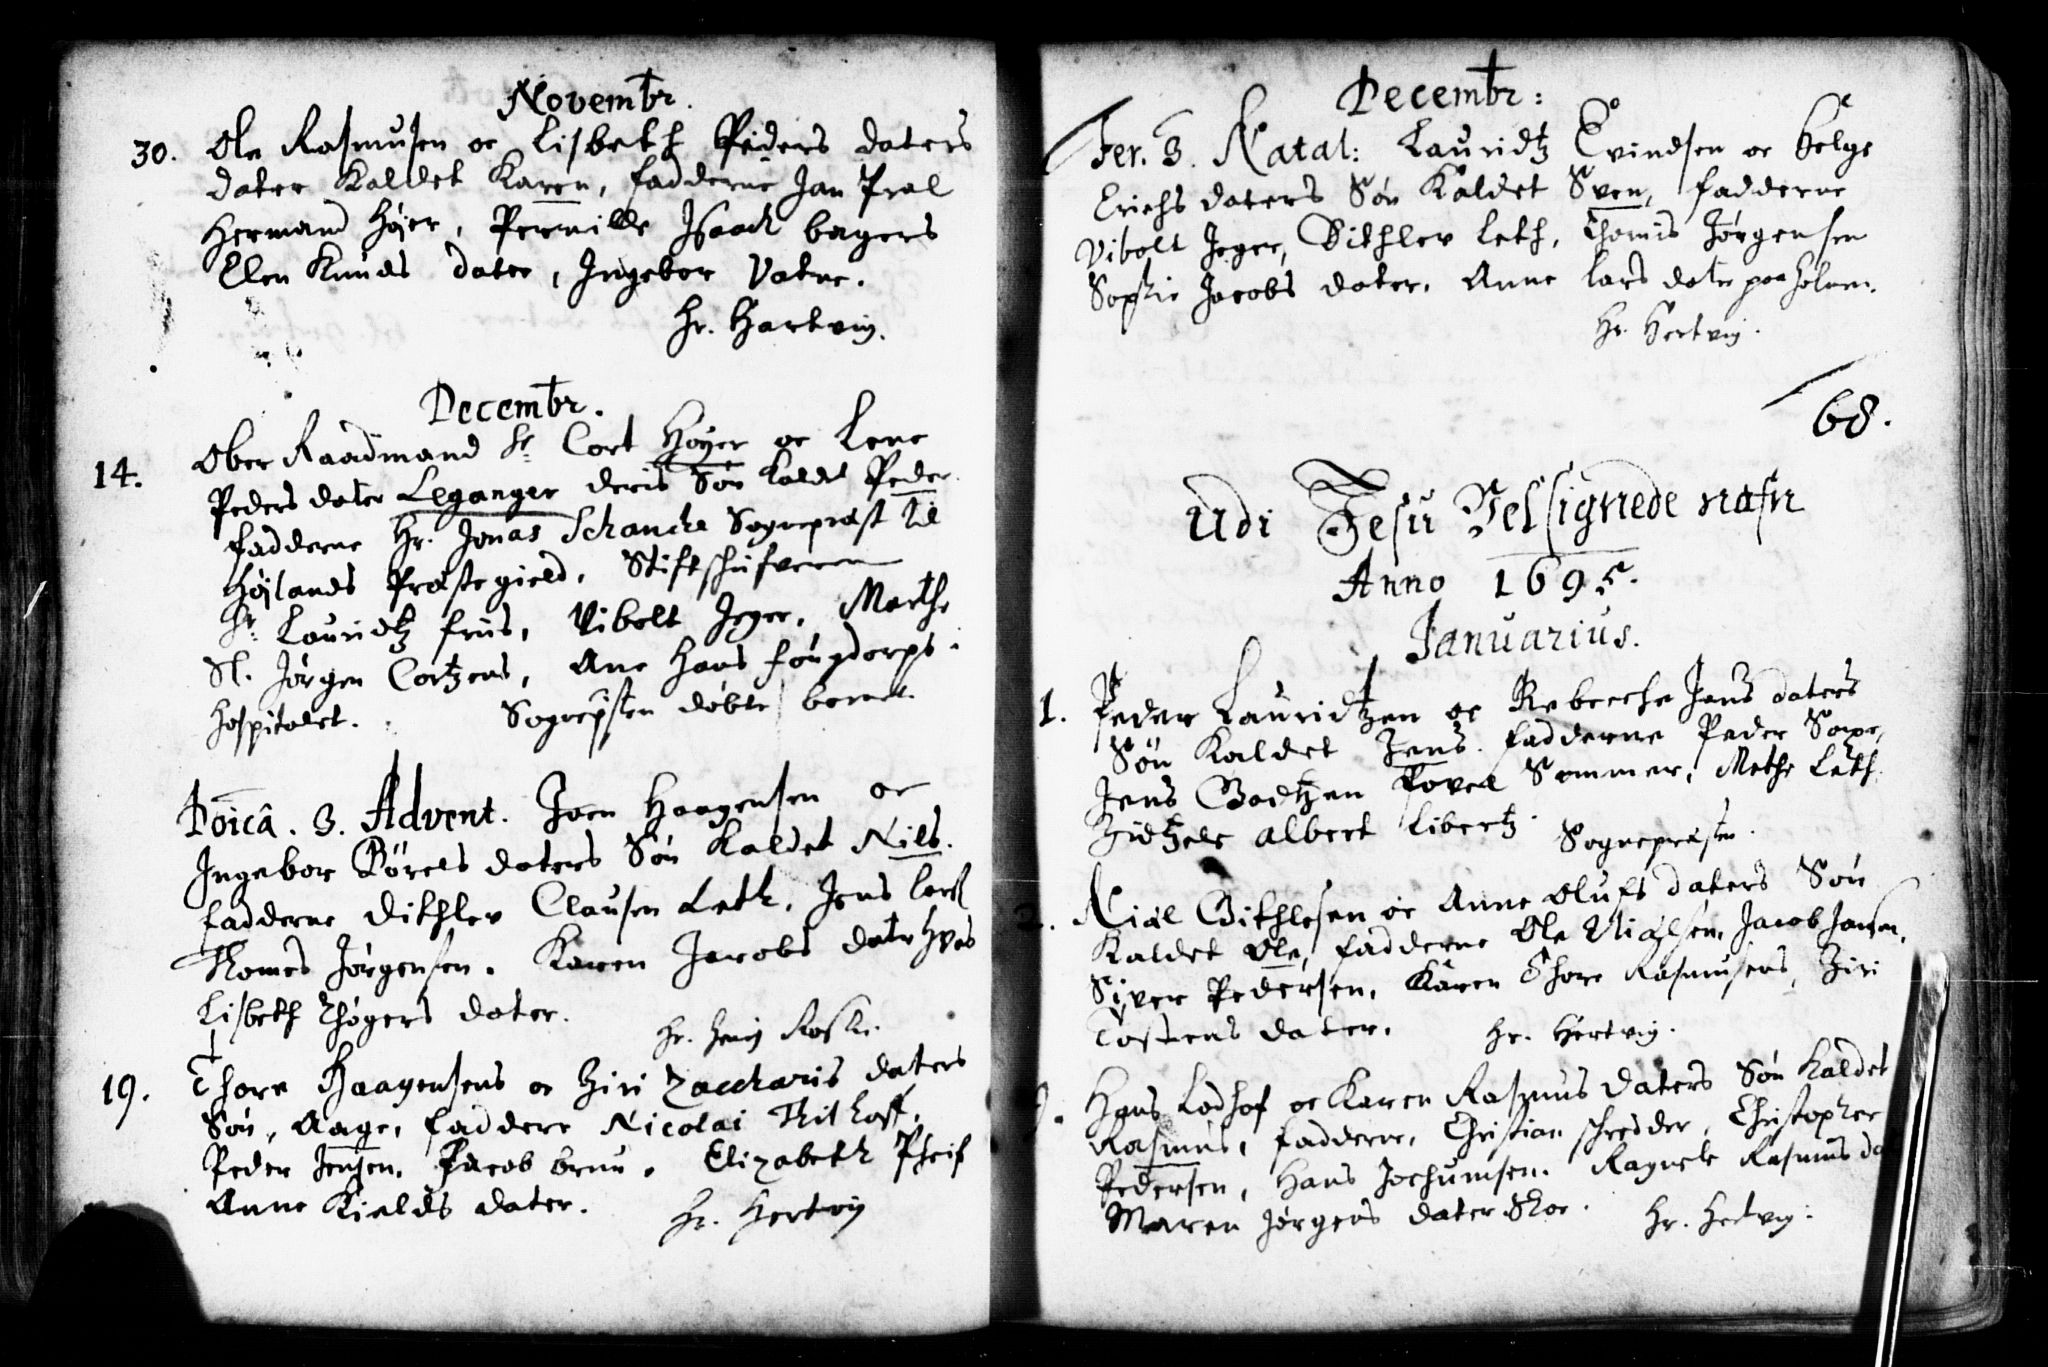 Novembr.
30. Ole Rasmusen oc Lisbeth Peders daters
dater kaldet Karen, fadderne Jan Pral
Hermand Høyer, Pernille Isaach bagers
Elen Knuds dater, Ingebor Vatne.
Hr. Hartvig.
Decembr.
14. Ober Raadmand Sr Cort Høyer oc Lene
Peders dater Leganger deris Søn kaldt Peder.
fadderne Hr. Jonas Schanche Sogneprest til
Højlands Præstegield, Stiftschrifveren
Sr Lauridtz friis, Vibolt Jeger, Marthe
Sl. Jørgen Cortzens, Ane Hans
Hospitalet. Sognepsten døbte barnet.
Doîca. 3. Advent. Joen Haagensen oc
Ingebor Børels daters Søn kaldet Nils.
fadderne Dithlev Clausen Leth, Jens
Thomes Jørgensen. Karen Jacobs dater
Lisbeth Thøgers dater.
Hr.
19. Thore Haagensens oc Ziri Zaccharis daters
Søn, Aage, faddere Nicolai Thithoff,
Peder Jensen, Jacob brun, Elizabeth Pheif
Anne Kields dater. Hr. Hertvig
Decembr:
Fer. 3. Natal: Lauridtz Evindsen oc Helge
Erichs daters Søn kaldet Sven, fadderne
Vibolt Jeger, Dithlev Leth, Thomis Jørgensen
Sophie Jacobs dater, Anne Lars dater paa Holmen.
Hr. Hertvig.
68.
Udi Jesu Velsignede nafn
Anno 1695.
Januarius.
1. Peder Lauridtzen oc Rebecche Jens daters
Søn kaldet Jens. fadderne Peder
Jens Povel Sommer, Methe Leth.
Zidtzele Albert Libertz. Sognepræsten.
2. Niel Dithlefsen oc Anne Olufs daters Søn
kaldet Ole, fadderne Ole Nielsen, Jacob Jansen,
Siver Pedersen, Karen Thore Rasmusens, Ziri
Tostens dater. Hr. Hertvig.
Hans Lodhof oc Karen Rasmus daters Søn kaldet
Rasmus, fadderne, Christian schredder, Christopher
Pedersen, Hans Jochumsen. Ragnele Rasmus da
Maren Jørgens dater Hr. Hertvig.